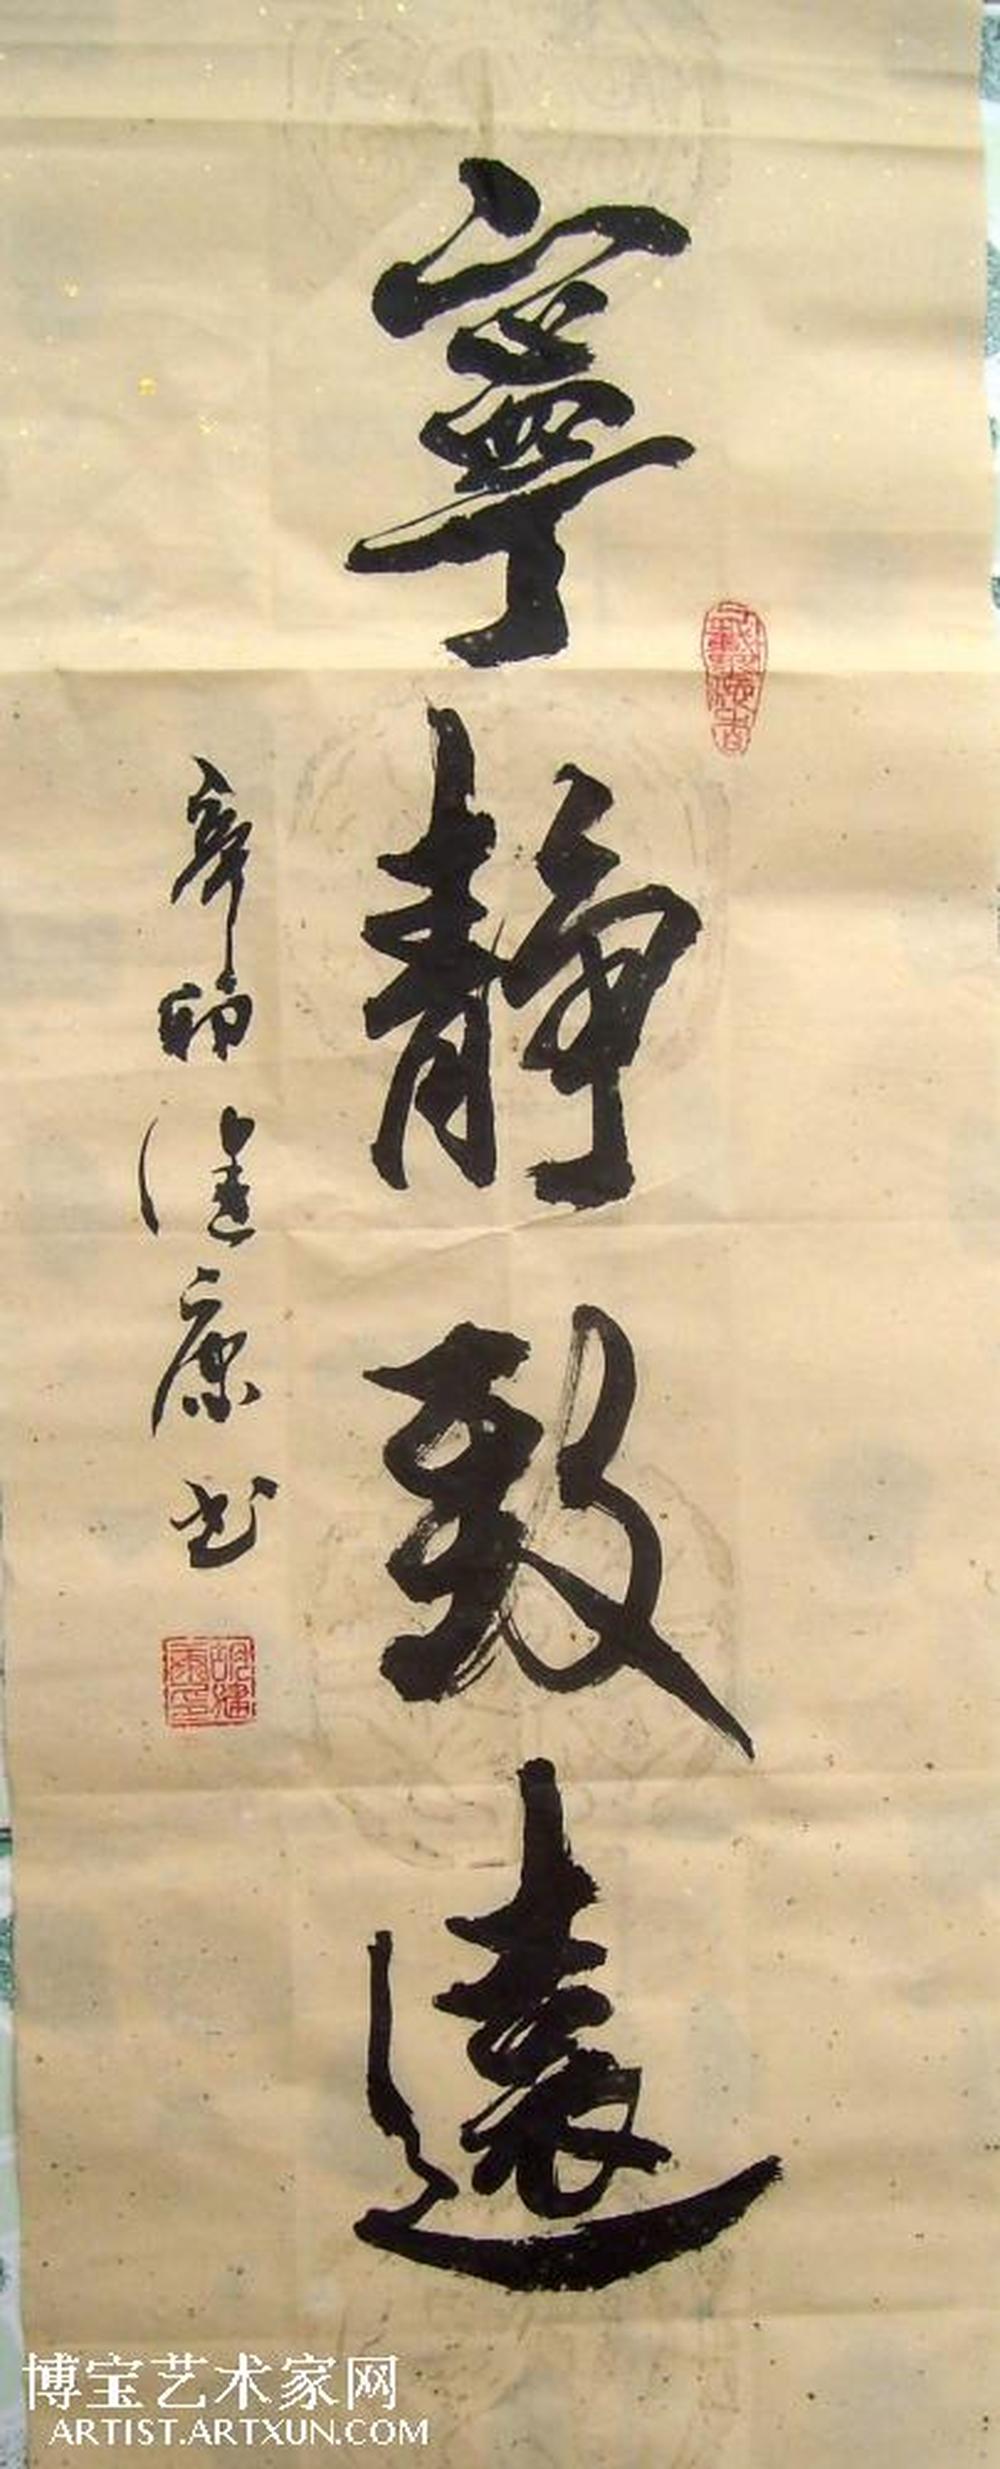 寧靜致遠
辛卯健康书
胡健康印
博宝艺术家网
ARTIST.ARTXUN.COM